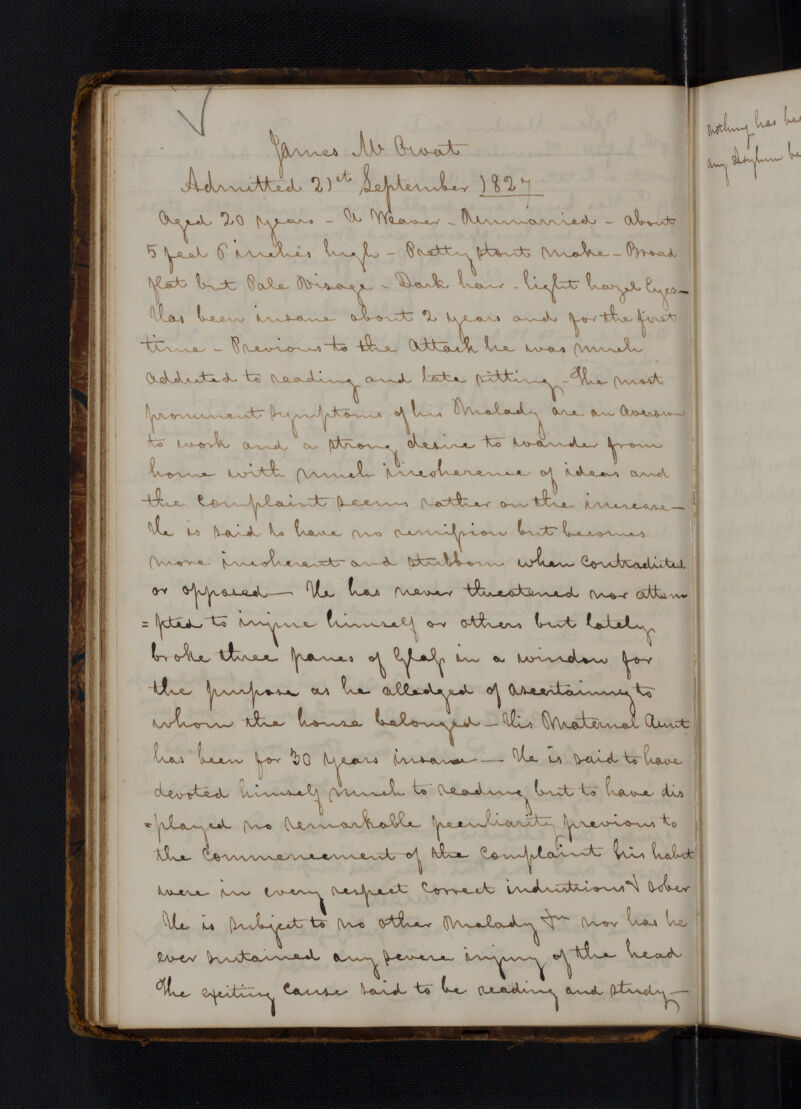 James McOwat
Admitted 21st September 1827
Aged 20 years - A Weaver - Unmarried - about
5 feet 6 inches high - Pretty stout make - Broad
flat but Pale Visage - Dark hair - light hazel Eyes -
Has been insane about 2 years and for the first
time - Previous to the attack he was much
addicted to reading and late sitting - The most
prominent Symptoms of his Malady are an aversion
to work and a strong desire to wander from
home with much incoherence of ideas and
the Complaint seems rather on the increase -
He is said to have no remission but becomes
more incoherent and stubborn when Contradicted
or opposed - He has never threatened nor attem
=pted to injure himself or others but lately
broke three panes of Glass in a window for
the purpose as he alledged of ascertaining to
whom the house belonged - His Maternal Aunt
has been for 30 years insane - He is said to have
devoted himself much to reading but to have dis
=played no remarkable peculiarity previous to
the Commencement of the Complaint his habit
were in every respect Correct industrious & sober
He is subject to no other Malady nor has he
ever sustained any severe injury of the head
The exciting Cause said to be reading and study -
nothing has be
any Asylum be